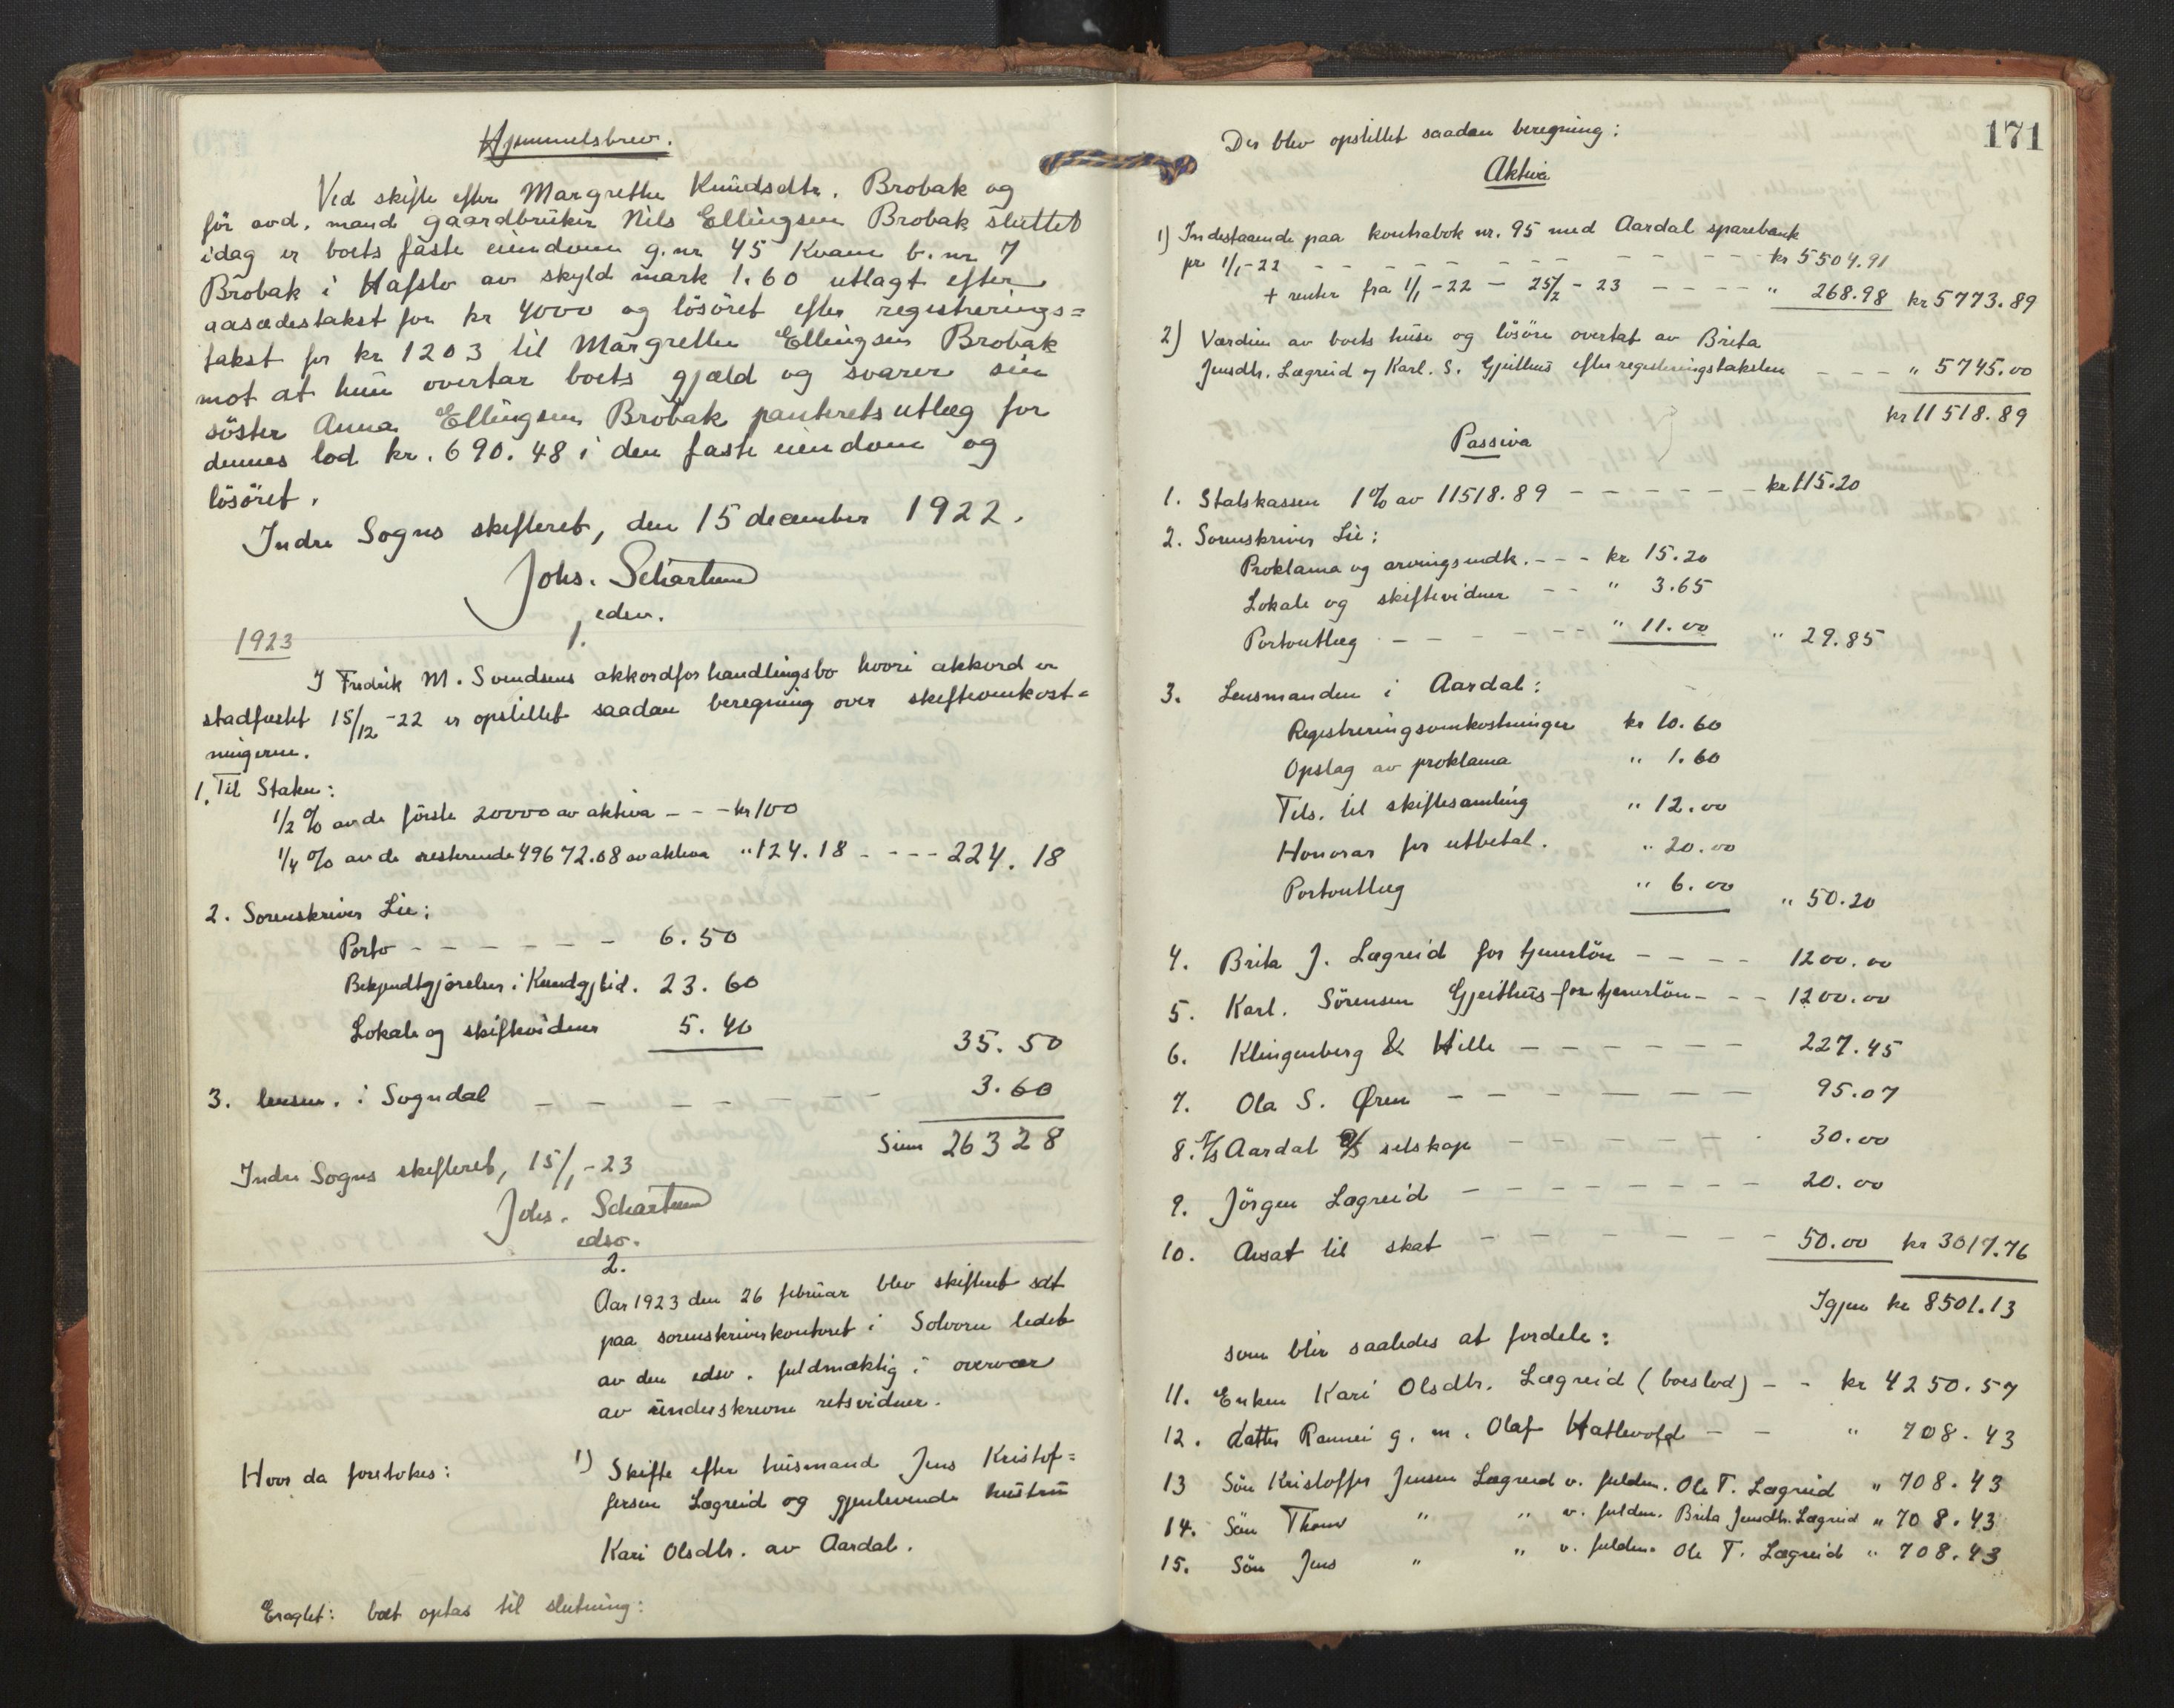 Hjemmelsbrev.
Ved skifte efter Margrethe Knudsdtr. Brobak og
før avd. mand gaardbruker Nils Ellingsen Brobak sluttet
idag er boets faste eiendom g.nr 45 Kvam b.nr 7
Brobak i Hafslo av skyld mark 1.60 utlagt efter
aasædestakst for kr 4000 og lösöret efter registrerings=
takst for kr 1203 til Margrethe Ellingsen Brobak
mot at hun overtar boets gjæld og svarer sin
söster Anna Ellingsen Brobak panteretsutlæg for
dennes lod kr. 690.48 i den faste eiendom og
lösöret.
Indre Sogns skifteret, den 15 december 1922.
Johs. Schartum
edsv.
1923
1.
I Fredrik M. Svendsens akkordforhandlingsbo hvori akkord er
stadfæstet 15/12-22 er opstillet saadan beregning over skifteomkost=
ningerne.
1. Til Staten:
1/2 % av de förste 20000 av aktiva - - - kr 100
1/4 % av de resterende 49672.08 av aktiva " 124.18 - - - - 224.18
2. Sorenskriver Lie:
Porto - - - - - - - 6.50
Bekjendtgjörelser i Kundgj.tid. 23.60
Lokale og skiftevidner 5.40
35.50
3. lensm. i Sogndal - - - - - - - 3.60
Sum 263 28
Indre Sogns skifteret, 15/1-23
Johs. Schartum
edsv.
2.
Aar 1923 den 26 februar blev skifteret sat
paa sorenskriverkontoret i Solvorn ledet
av den edsv. fuldmægtig i overvær
av underskrevne retsvidner.
Hvor da foretokes:
1) Skifte efter husmand Jens Kristof=
fersen Lægreid og gjenlevende hustru
Kari Olsdtr. av Aardal.
Eragtet: boet optas til slutning:
171
Der blev opstillet saadan beregning:
Aktiva
1) Indestaaende paa kontrabok nr. 95 med Aardal sparebank
pr 1/1-22 - - - - - - - - - - - kr 5504.91
+ renter fra 1/1-22 - 25/2-23 - - - - " 268.98 kr 5773.89
2) Værdien av boets huse og lösöre overtat av Brita
Jensdtr. Lægreid og Karl. S. Gjeithus efter registreringstaksten - - - " 5745.00
kr 11518.89
Passiva
1. Statskassen 1% av 11518.89 - - - - - - kr 115.20
2. Sorenskriver Lie:
Proklama og arvingsindk. - - - kr 15.20
Lokale og skiftevidner - - " 3.65
Portoutlæg - - - - - - - " 11.00 " 29.85
3. Lensmanden i Aardal:
Registreringsomkostninger kr 10.60
Opslag av proklama " 1.60
Tils. til skiftesamling " 12.00
Honorar for utbetal. " 20.00
Portoutlæg " 6.00 " 50.20
4. Brita J. Lægreid for tjenerlön - - - - 1200.00
5. Karl. Sörensen Gjeithus for tjenerlön - - - 1200.00
6. Klingenberg & Hille - - - - - - 227.45
7. Ola S. Øren - - - - - - - 95.07
8. Aardal selskap - - - - - - 30.00
9. Jörgen Lægreid - - - - - - - - 20.00
10. Avsat til skat - - - - - - - 50.00 kr 3017.76
Igjen kr 8501.13
som blir saaledes at fordele:
11. Enken Kari Olsdtr. Lægreid (boeslod) - - kr 4250.57
12. datter Rannei g. m. Olaf Hatlevold - - " 708.43
13 Sön Kristoffer Jensen Lægreid v. fuldm. Ole T. Lægreid " 708.43
14. Sön Thomas " " v. fuldm. Brita Jensdtr. Lægreid " 708.43
15. Sön Jens " " v. fuldm. Ole T. Lægreid " 708.43